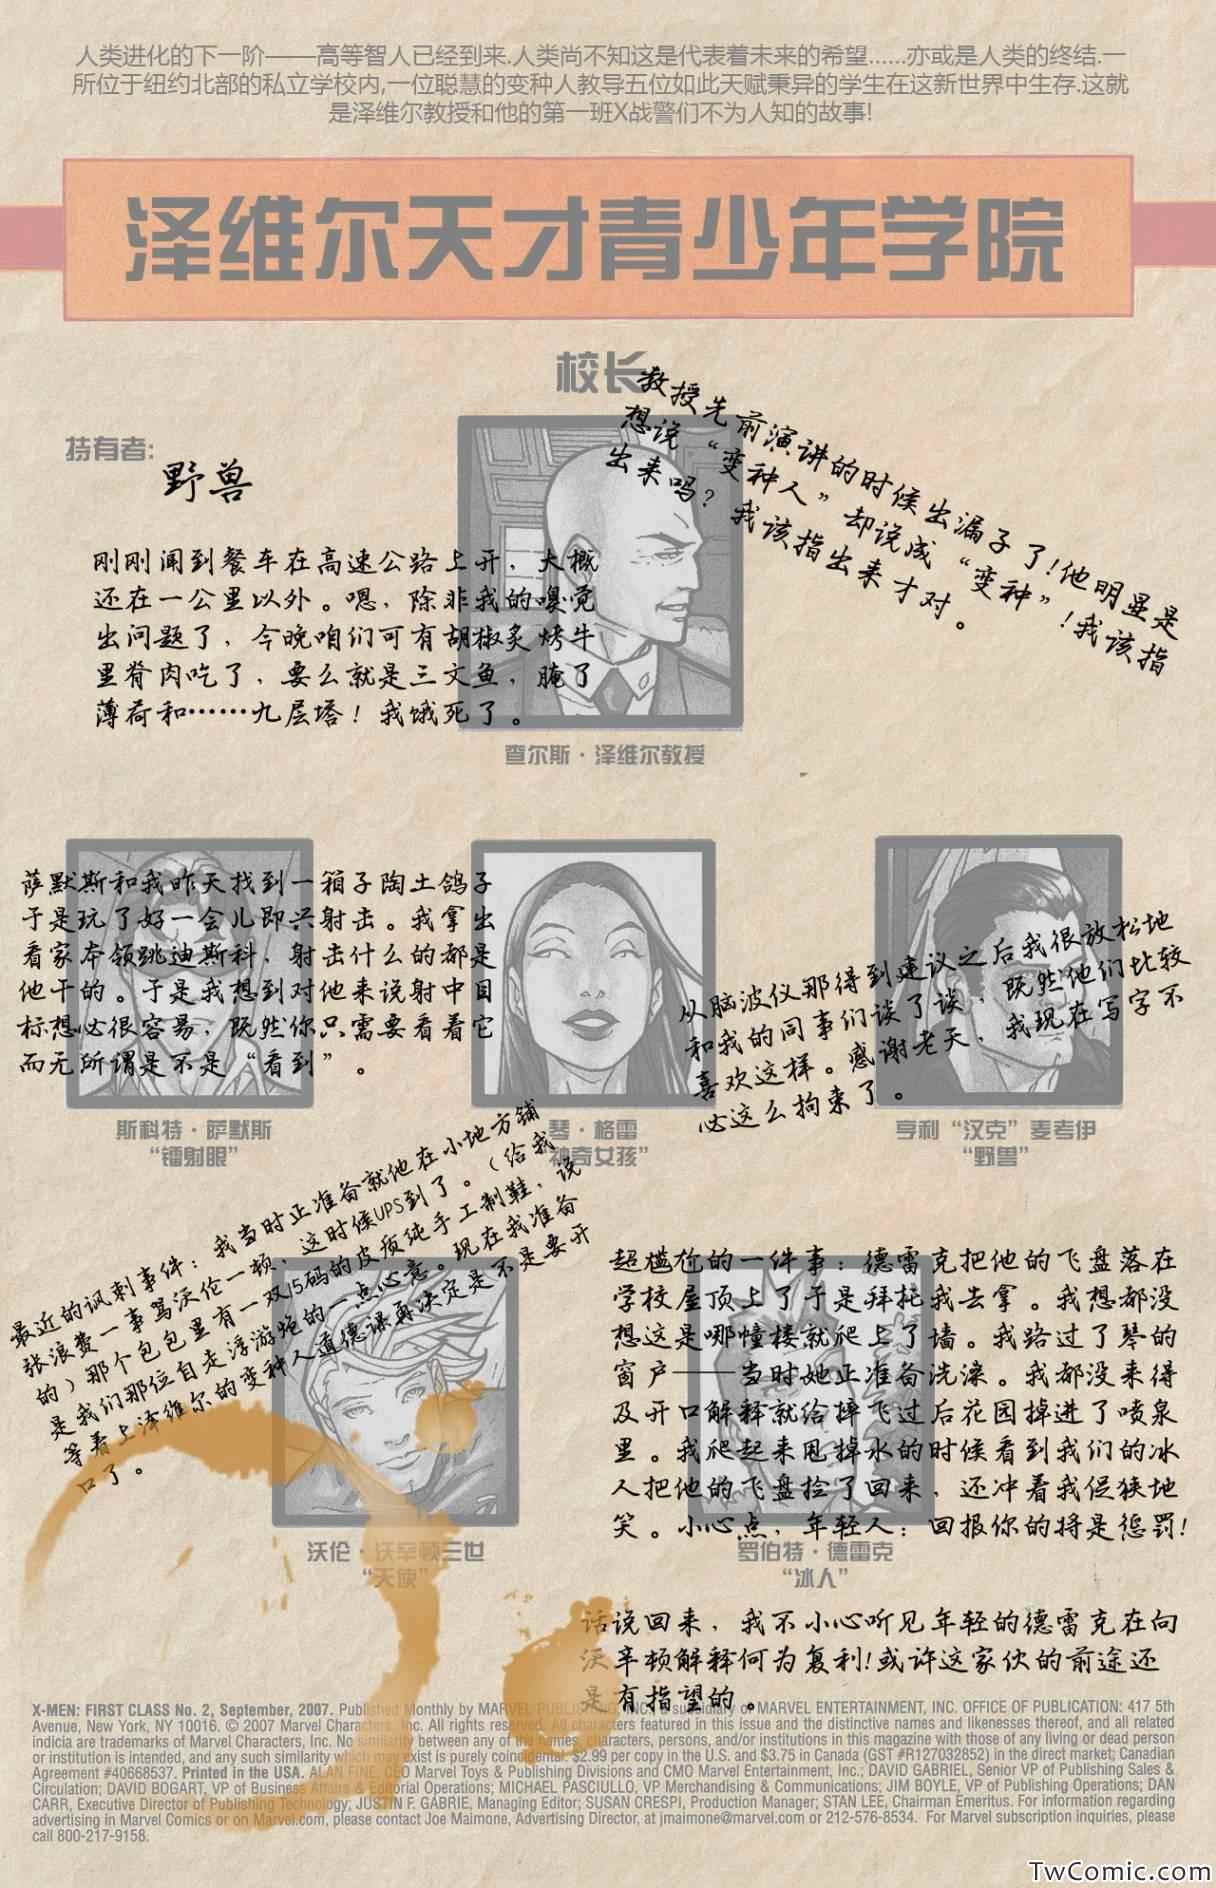 人类进化的下一阶——高等智人已经到来.人类尚不知这是代表着未来的希望……亦或是人类的终结.一
所位于纽约北部的私立学校内,一位聪慧的变种人教导五位如此天赋秉异的学生在这新世界中生存.这就
是泽维尔教授和他的第一班X战警们不为人知的故事!
泽维尔天才青少年学院
校长
教授先前演讲的时候出漏子了!他明显是
想说“变种人”却说成“变种”!我该指
出来吗?我该指出来才对。
持有者:
野兽
刚刚闻到餐车在高速公路上开，大概
还在一公里以外。嗯，除非我的嗅觉
出问题了，今晚咱们可有胡椒炙烤牛
里脊肉吃了，要么就是三文鱼，腌了
薄荷和……九层塔！我饿死了。
查尔斯·泽维尔教授
萨默斯和我昨天找到一箱子陶土鸽子
于是玩了好一会儿即兴射击。我拿出
看家本领跳迪斯科，射击什么的都是
他干的。于是我想到对他来说射中目
标想必很容易，既然你只需要看着它
而无所谓是不是“看到”。
斯科特·萨默斯
“镭射眼”
琴·格雷
神奇女孩”
从脑波仪那得到建议之后我很放松地
和我的同事们谈了谈，既然他们比较
喜欢这样。感谢老天，我现在写字不
必这么拘束了。
亨利“汉克”麦考伊
“野兽”
最近的讽刺事件：我当时正准备就他在小地方铺
张浪费一事骂沃伦一顿，这时候UPS到了。（给我
的）那个包包里有一双15码的皮质纯手工制鞋，说
是我们那位自走浮游炮的一点心意。现在我准备
等着上泽维尔的变种人道德课再决定是不是要开
口了。
沃伦·沃辛顿三世
“天使”
超尴尬的一件事：德雷克把他的飞盘落在
学校屋顶上了于是拜托我去拿。我想都没
想这是哪幢楼就爬上了墙。我路过了琴的
窗户——当时她正准备洗澡。我都没来得
及开口解释就给摔飞过后花园掉进了喷泉
里。我爬起来甩掉水的时候看到我们的冰
人把他的飞盘捡了回来，还冲着我促狭地
笑。小心点，年轻人：回报你的将是惩罚!
罗伯特·德雷克
“冰人”
话说回来，我不小心听见年轻的德雷克在向
沃辛顿解释何为复利!或许这家伙的前途还
是有指望的。
X-MEN: FIRST CLASS No. 2, September, 2007. Published Monthly by MARVEL PUBLISHING, INC., a subsidiary of MARVEL ENTERTAINMENT, INC. OFFICE OF PUBLICATION: 417 5th
Avenue, New York, NY 10016. © 2007 Marvel Characters, Inc. All rights reserved. All characters featured in this issue and the distinctive names and likenesses thereof, and all related
indicia are trademarks of Marvel Characters, Inc. No similarity between any of the names, characters, persons, and/or institutions in this magazine with those of any living or dead person
or institution is intended, and any such similarity which may exist is purely coincidental. $2.99 per copy in the U.S. and $3.75 in Canada (GST #R127032852) in the direct market; Canadian
Agreement #40668537. Printed in the USA. ALAN FINE, CEO Marvel Toys & Publishing Divisions and CMO Marvel Entertainment, Inc.; DAVID GABRIEL, Senior VP of Publishing Sales &
Circulation; DAVID BOGART, VP of Business Affairs & Editorial Operations; MICHAEL PASCIULLO, VP Merchandising & Communications; JIM BOYLE, VP of Publishing Operations; DAN
CARR, Executive Director of Publishing Technology; JUSTIN F. GABRIE, Managing Editor; SUSAN CRESPI, Production Manager; STAN LEE, Chairman Emeritus. For information regarding
advertising in Marvel Comics or on Marvel.com, please contact Joe Maimone, Advertising Director, at jmaimone@marvel.com or 212-576-8534. For Marvel subscription inquiries, please
call 800-217-9158.
TwComic.com